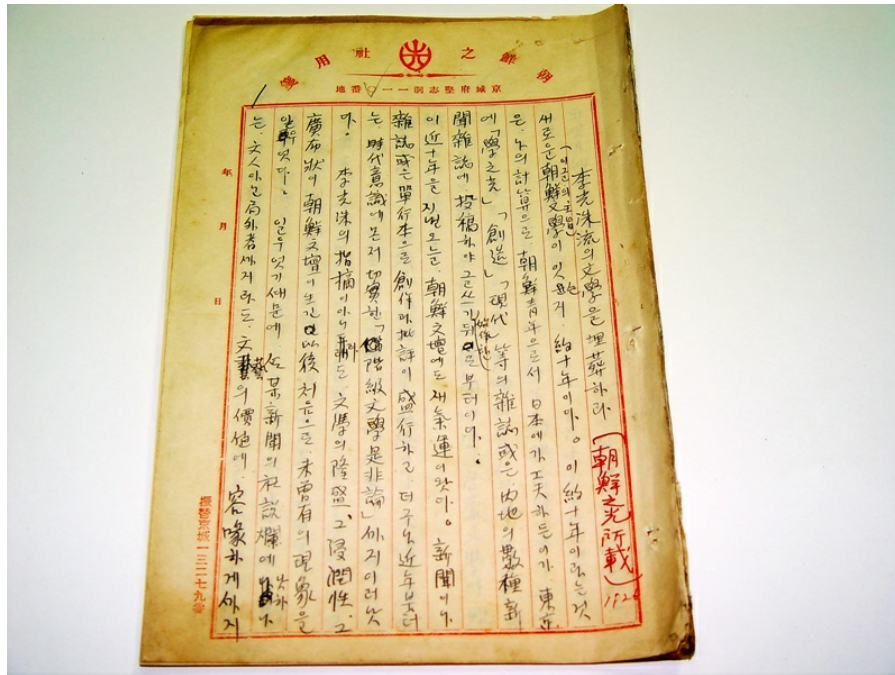 朝鮮之光社用箋
京城府堅志洞一一〇番地
李光洙流의文學을埋葬하라
(朝鮮之光所載)
새로운朝鮮文學이 잇슨지 約十年이다。이約十年이라는것
은、나의計算으로 朝鮮青年으로서 日本에가工夫하든이가、東京
에「學之光」「創造」「現代」等의雜誌或은 內地의數種新
聞雜誌에 投稿하야 글쓰기始作한뒤로부터이다。
이近十年을 지낸오늘은、朝鮮文壇에도 새氣運이왓다。新聞이나
雜誌或은單行本으로 創作과批評이 盛行하고 더구나近年붓터
는、時代意識에몬저切實한「階級文學是非論」까지이러낫
다。 李光洙의指摘이아니라도 文學의隆盛、그浸潤性、그
廣布狀이 朝鮮文壇이生긴以後처음으로 未曾有의現象을
일우엇다。일우엇기때문에 某新聞의社說欄에
는、文人아닌局外者까지라도、文藝의價値에 容喙하게까지
年 月 日
振替京城一三二七九番